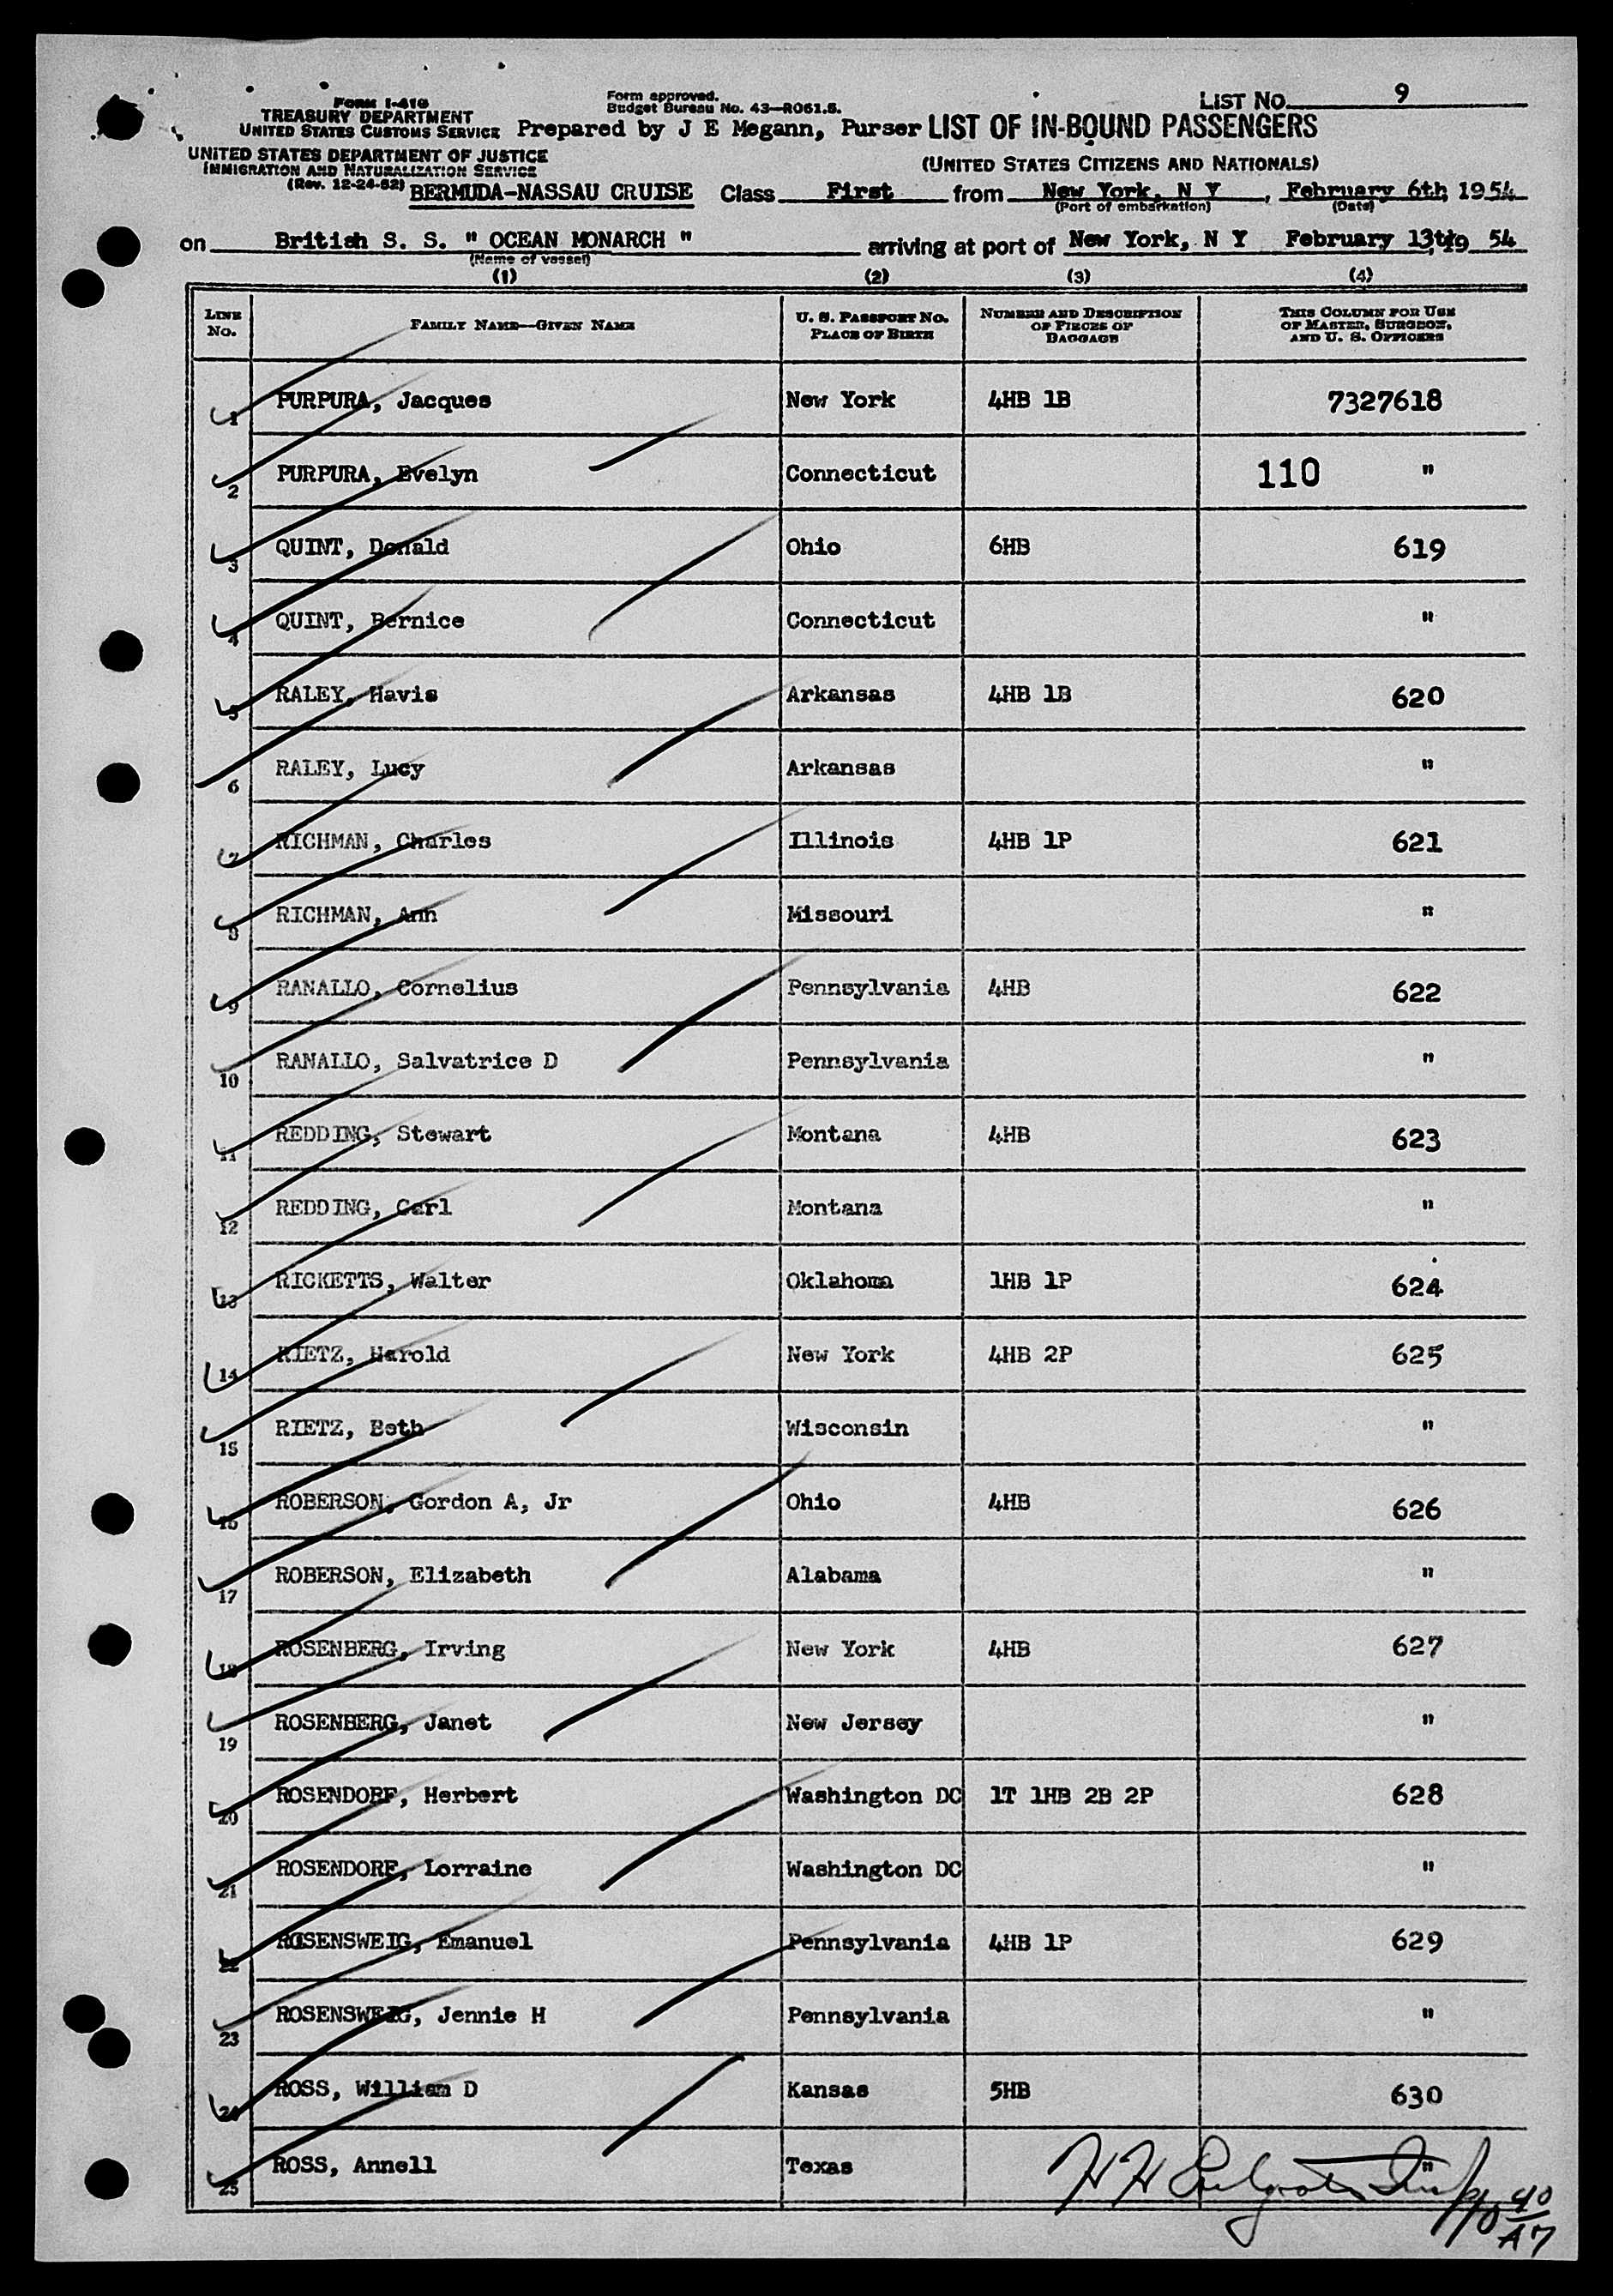 LIST NO. 9
FORM I-418
TREASURY DEPARTMENT
UNITED STATES CUSTOMS SERVICE
Form approved.
Budget Bureau No. 43—R061.5.
Prepared by J E Megann, Purser
LIST OF IN-BOUND PASSENGERS
UNITED STATES DEPARTMENT OF JUSTICE
IMMIGRATION AND NATURALIZATION SERVICE
(Rev. 12-24-52)
(UNITED STATES CITIZENS AND NATIONALS)
BERMUDA-NASSAU CRUISE Class First from New York, N Y, February 6th, 1954
(Port of embarkation) (Date)
on British S. S. " OCEAN MONARCH " arriving at port of New York, N Y February 13th, 19 54
(Name of vessel)
(1) (2) (3) (4)
LINE NO. FAMILY NAME—GIVEN NAME U. S. PASSPORT NO. PLACE OF BIRTH NUMBER AND DESCRIPTION OF PIECES OF BAGGAGE THIS COLUMN FOR USE OF MASTER, SURGEON, AND U. S. OFFICERS
1 PURPURA, Jacques New York 4HB 1B 7327618
2 PURPURA, Evelyn Connecticut 110 "
3 QUINT, Donald Ohio 6HB 619
4 QUINT, Bernice Connecticut "
5 RALEY, Havis Arkansas 4HB 1B 620
6 RALEY, Lucy Arkansas "
7 RICHMAN, Charles Illinois 4HB 1P 621
8 RICHMAN, Ann Missouri "
9 RANALLO, Cornelius Pennsylvania 4HB 622
10 RANALLO, Salvatrice D Pennsylvania "
11 REDDING, Stewart Montana 4HB 623
12 REDDING, Carl Montana "
13 RICKETTS, Walter Oklahoma 1HB 1P 624
14 RIETZ, Harold New York 4HB 2P 625
15 RIETZ, Beth Wisconsin "
16 ROBERSON, Gordon A, Jr Ohio 4HB 626
17 ROBERSON, Elizabeth Alabama "
18 ROSENBERG, Irving New York 4HB 627
19 ROSENBERG, Janet New Jersey "
20 ROSENDORF, Herbert Washington DC 1T 1HB 2B 2P 628
21 ROSENDORF, Lorraine Washington DC "
22 ROSENSWEIG, Emanuel Pennsylvania 4HB 1P 629
23 ROSENSWEIG, Jennie H Pennsylvania "
24 ROSS, William D Kansas 5HB 630
25 ROSS, Annell Texas "